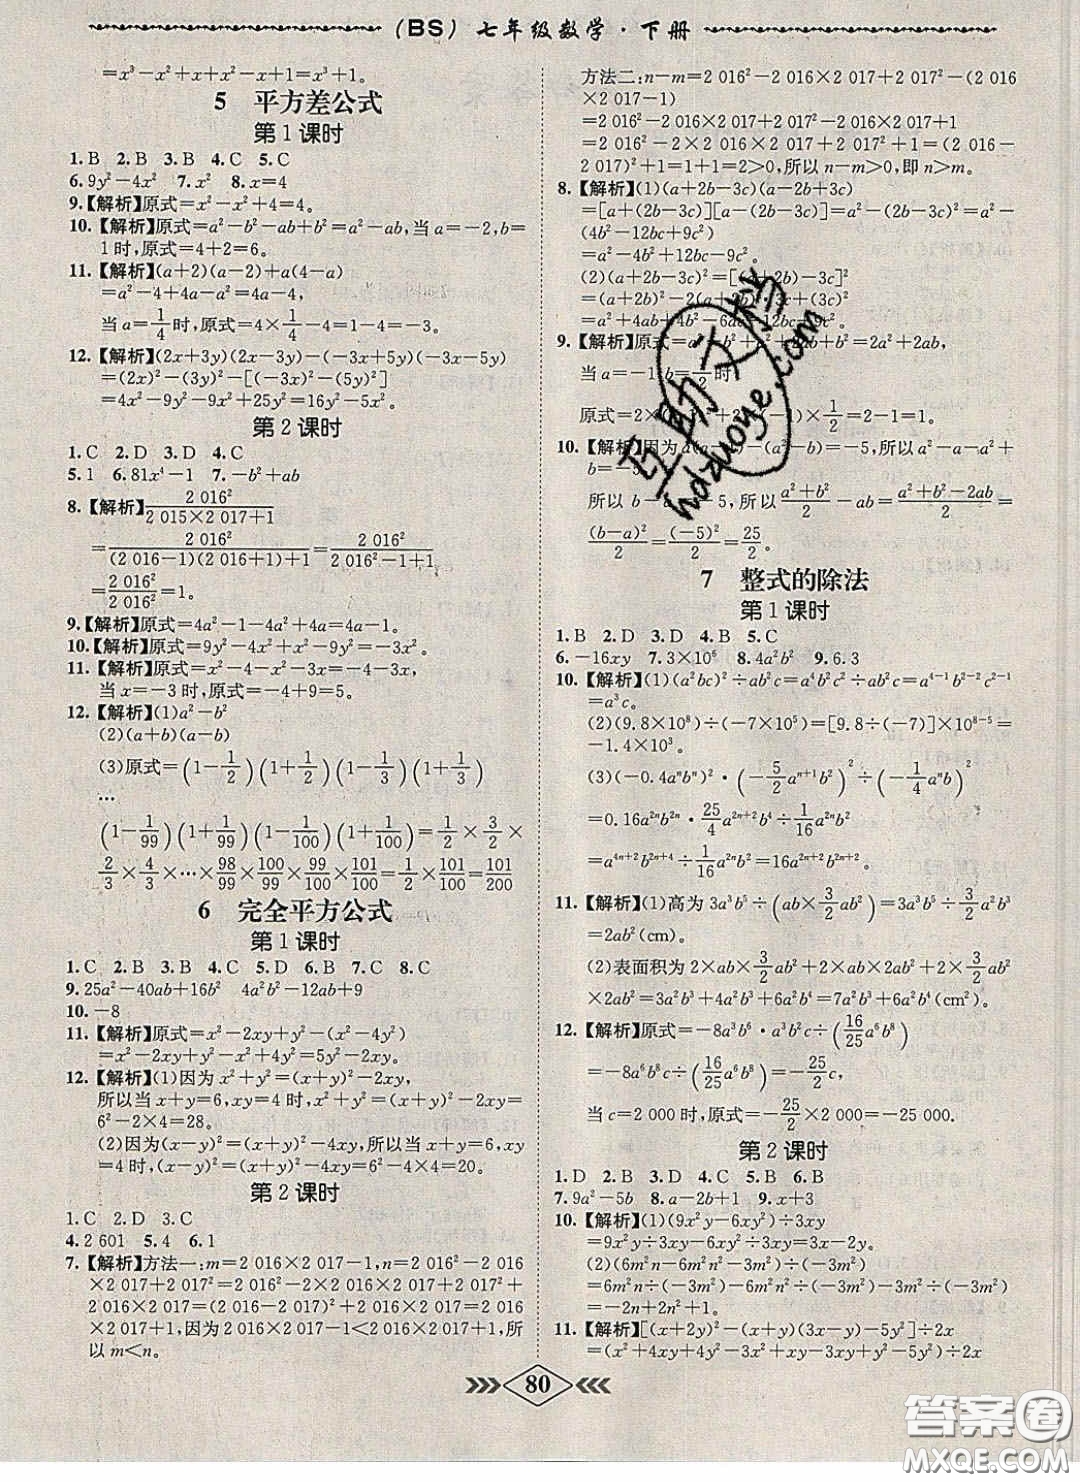 (BS) 七年级数学·下册
=x³-x²+x+x²-x+1=x³+1。
5 平方差公式
第1课时
1. B 2. B 3. B 4. C 5. C
6. 9y²-4x² 7. x² 8. x=4
9.【解析】原式=x²-x²+4=4。
10.【解析】原式=a²-b²-ab+b²=a²-ab,当a=-2,b=
1时,原式=4+2=6。
11.【解析】(a+2)(a-2)+a(4-a)
=a²-4+4a-a²=4a-4,
当a=1/4时,原式=4×1/4-4=1-4=-3。
12.【解析】(2x+3y)(2x-3y)-(-3x+5y)(-3x-5y)
=(2x)²-(3y)²-[(-3x)²-(5y)²]
=4x²-9y²-9x²+25y²=16y²-5x²。
第2课时
1. C 2. D 3. D 4. C
5. 1 6. 81x⁴-1 7. -b²+ab
8.【解析】2 016²/(2 015×2 017+1)
=2 016²/((2 016-1)(2 016+1)+1)=2 016²/(2 016²-1+1)
=2 016²/2 016²=1。
9.【解析】原式=4a²-1-4a²+4a=4a-1。
10.【解析】原式=9y²-4x²+4x²-9y²=-3x²。
11.【解析】原式=x²-4-x²-3x=-4-3x,
当x=-3时,原式=-4+9=5。
12.【解析】(1)a²-b²
(2)(a+b)(a-b)
(3)原式=(1-1/2)(1+1/2)(1-1/3)(1+1/3)
…
(1-1/99)(1+1/99)(1-1/100)(1+1/100)=1/2×3/2×
2/3×4/3×…×98/99×100/99×99/100×101/100=1/2×101/100=101/200
6 完全平方公式
第1课时
1. C 2. B 3. B 4. C 5. D 6. C 7. C 8. C
9. 25a²-40ab+16b² 4a²b²-12ab+9
10. -8
11.【解析】原式=x²-2xy+y²-(x²-4y²)
=x²-2xy+y²-x²+4y²=5y²-2xy。
12.【解析】(1)因为x²+y²=(x+y)²-2xy,
所以当x+y=6,xy=4时,x²+y²=(x+y)²-2xy=
6²-2×4=28。
(2)因为(x-y)²=(x+y)²-4xy,所以当x+y=6,xy
=4时,(x-y)²=(x+y)²-4xy=6²-4×4=20。
第2课时
1. C 2. D 3. C
4. 2 601 5. 4 6. 1
7.【解析】方法一:m=2 016×2 017-1,n=2 016²-2 016
×2 017+2 017²=2 016²-2×2 016×2 017+2 017²+
2 016×2 017=(2 016-2 017)²+2 016×2 017=2 016
×2 017+1,因为2 016×2 017-1<2 016×2 017+1,所
以m<n。
方法二:n-m=2 016²-2 016×2 017+2 017²-(2 016
×2 017-1)
=2 016²-2 016×2 017+2 017²-2 016×2 017+1
=2 016²-2×2 016×2 017+2 017²+1=(2 016-
2 017)²+1=1+1=2>0,所以n-m>0,即n>m。
8.【解析】(1)(a+2b-3c)(a-2b+3c)
=[a+(2b-3c)][a-(2b-3c)]=a²-(2b-3c)²=a²-
(4b²-12bc+9c²)
=a²-4b²+12bc-9c²。
(2)(a+2b-3c)²=[(a+2b)-3c]²
=(a+2b)²-2(a+2b)·3c+(3c)²
=a²+4ab+4b²-6ac-12bc+9c²。
9.【解析】原式=a²-b²+a²+b²+2ab=2a²+2ab,
当a=-1,b=1/2时,
原式=2×(-1)²+2×(-1)×1/2=2-1=1。
10.【解析】因为a(a-1)-(a²-b)=-5,所以a²-a-a²+
b=-5,
所以b-a=-5,所以(a²+b²)/2-ab=(a²+b²-2ab)/2=
(b-a)²/2=(-5)²/2=25/2。
7 整式的除法
第1课时
1. B 2. D 3. D 4. B 5. C
6. -16xy 7. 3×10⁶ 8. 4a²b² 9. 6.3
10.【解析】(1)(a²bc)²÷ab²c=a⁴b²c²÷ab²c=a⁴⁻¹b²⁻²c²⁻¹
=a³c。
(2)(9.8×10⁸)÷(-7×10⁵)=[9.8÷(-7)]×10⁸⁻⁵=
-1.4×10³。
(3)(-0.4aⁿbⁿ)²·(-5/2aⁿ⁺¹b²)²÷(-1/4aⁿb)²
=0.16a²ⁿb²ⁿ·25/4a²ⁿ⁺²b⁴÷1/16a²ⁿb²
=a⁴ⁿ⁺²b²ⁿ⁺⁴÷1/16a²ⁿb²=16a²ⁿ⁺²b²ⁿ⁺²。
11.【解析】(1)高为3a³b⁵÷(ab×3/2ab²)=3a³b⁵÷3/2a²b³
=2ab²(cm)。
(2)表面积为2×ab×3/2ab²+2×ab×2ab²+2×3/2
ab²×2ab²=3a²b³+4a²b³+6a²b⁴=7a²b³+6a²b⁴(cm²)。
12.【解析】原式=-8a³b⁶·a³b²c÷(16/25a⁶b⁸)
=-8a⁶b⁸c÷(16/25a⁶b⁸)=-25/2c,
当c=2 000时,原式=-25/2×2 000=-25 000.
第2课时
1. D 2. B 3. D 4. C 5. B 6. B
7. 9a²-5b 8. a-2b+1 9. x+3
10.【解析】(1)(9x²y-6xy²)÷3xy
=9x²y÷3xy-6xy²÷3xy=3x-2y。
(2)(6m²n-6m²n²-3m²)÷(-3m²)
=6m²n÷(-3m²)-6m²n²÷(-3m²)-3m²÷(-3m²)
=-2n+2n²+1。
11.【解析】[(x+2y)²-(x+y)(3x-y)-5y²]÷2x
=(x²+4xy+4y²-3x²+xy-3xy+y²-5y²)÷2x
80
互助文档
hdzuoye.com
答案圈
MXQE.COM